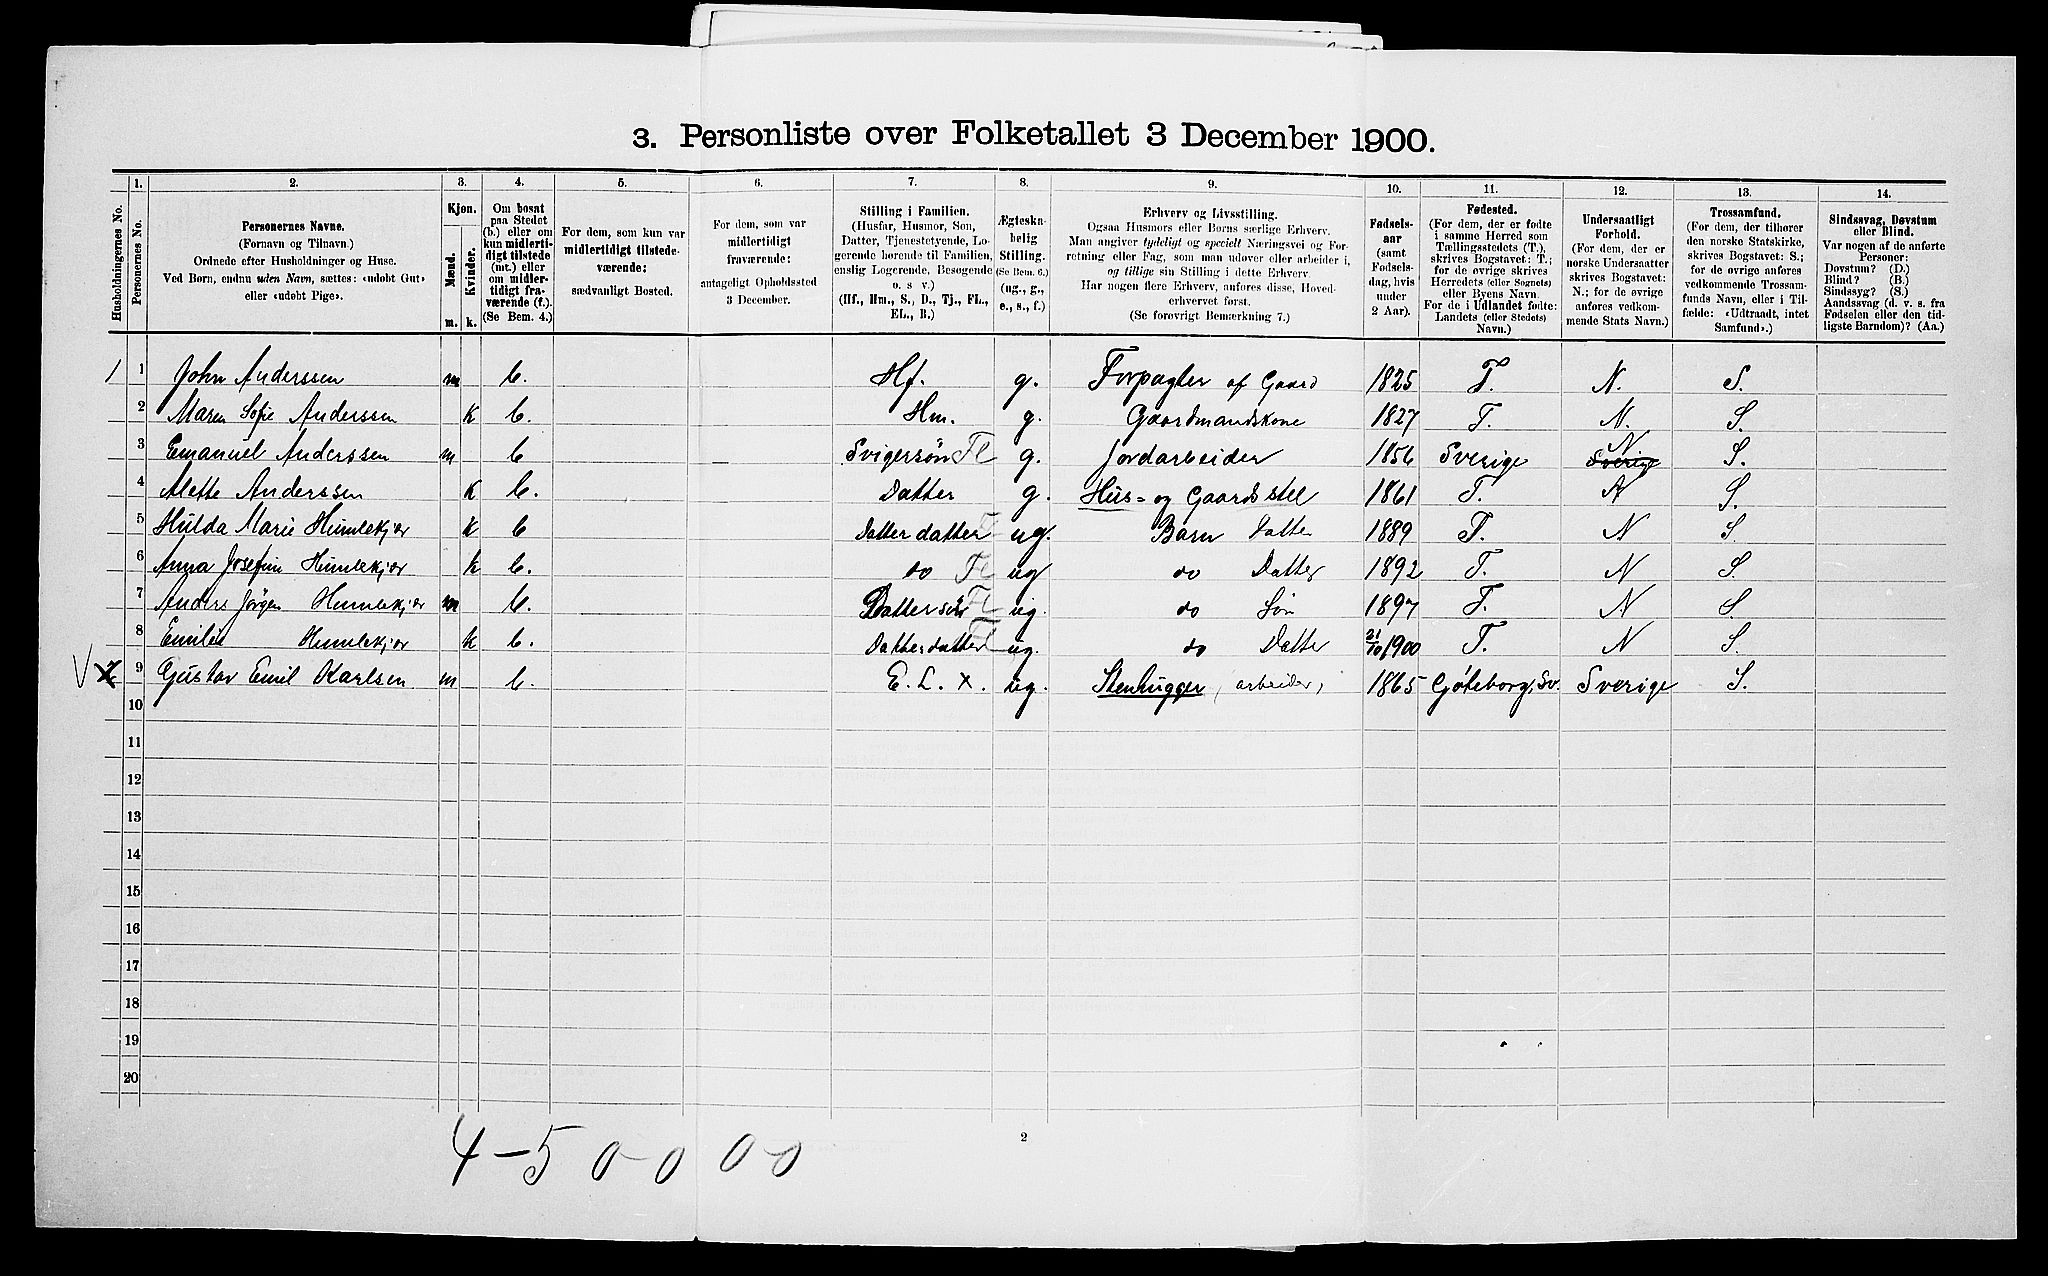 3. Personliste over Folketallet 3 December 1900.
1. 2. 3. 4. 5. 6. 7. 8. 9. 10. 11. 12. 13. 14.
Husholdningernes No.
Personernes No.
Personernes Navne.
(Fornavn og Tilnavn.)
Ordnede efter Husholdninger og Huse.
Ved Børn, endnu uden Navn, sættes: «udøbt Gut»
eller «udøbt Pige».
Kjøn.
Mænd.
Kvinder.
m. k.
Om bosat
paa Stedet
(b.) eller om
kun midlerti-
digt tilstede
(mt.) eller
om midler-
tidigt fra-
værende (f.).
(Se Bem. 4.)
For dem, som kun var
midlertidigt tilstede-
værende:
sædvanligt Bosted.
For dem, som var
midlertidigt
fraværende:
antageligt Opholdssted
3 December.
Stilling i Familien.
(Husfar, Husmor, Søn,
Datter, Tjenestetyende, Lo-
gerende hørende til Familien,
enslig Logerende, Besøgende
o. s v.)
(Hf., Hm., S., D., Tj., FL.,
EL., B.)
Ægteska-
belig
Stilling.
(Se Bem. 6.)
(ug., g.,
e., s., f.)
Erhverv og Livsstilling.
Ogsaa Husmors eller Børns særlige Erhverv.
Man angiver tydeligt og specielt Næringsvei og For-
retning eller Fag, som man udøver eller arbeider i,
og tillige sin Stilling i dette Erhverv.
Har nogen flere Erhverv, anføres disse, Hoved-
erhvervet først.
(Se forøvrigt Bemærkning 7.)
Fødsels-
aar
(samt
Fødsels-
dag, hvis
under
2 Aar).
Fødested.
(For dem, der er fødte
i samme Herred som
Tællingsstedets (T.),
skrives Bogstavet: T.;
for de øvrige skrives
Herredets (eller Sognets)
eller Byens Navn.
For de i Udlandet fødte:
Landets (eller Stedets)
Navn.)
Undersaatligt
Forhold.
(For dem, der er
norske Undersaatter
skrives Bogstavet:
N.; for de øvrige
anføres vedkom-
mende Stats Navn.)
Trossamfund.
(For dem, der tilhører
den norske Statskirke,
skrives Bogstavet: S.;
for de øvrige anføres
vedkommende Trossam-
funds Navn, eller i Til-
fælde: «Udtraadt, intet
Samfund».)
Sindssvag, Døvstum
eller Blind.
Var nogen af de anførte
Personer:
Døvstum? (D.)
Blind? (B.)
Sindssyg? (S.)
Aandssvag (d. v. s. fra
Fødselen eller den tid-
ligste Barndom)? (Aa.)
1 1 John Anderssen m b. Hf. g. Forpagter af Gaard 1825 T. N. S.
2 Maren Sofie Anderssen k b. Hm. g. Gaardmandskone 1827 T. N. S.
3 Emanuel Anderssen m b Svigersøn FL g. Jordarbeider 1856 Sverige Sverige N S.
4 Alette Anderssen k b. Datter g. Hus- og Gaardsstel 1861 T. N S.
5 Hulda Marie Humlekjær k b Datterdatter ug. Barn Datter 1889 T. N S
6 Anna Josefine Humlekjær k b. do FL ug do Datter 1892 T. N S.
7 Anders Jörgen Humlekjær m b. Dattersön FL ug. do Sön 1897 T. N S
8 Emilie Humlekjær k b. Datterdatter ug. do Datter 21/10 1900 T. N S.
9 Gustav Emil Karlsen m b. E. L. x. ug. Stenhugger, arbeider, 1865 Göteborg, Sv. Sverige S.
10
11
12
13
14
15
16
17
18
19
20
4-5 0-0 0-0
2